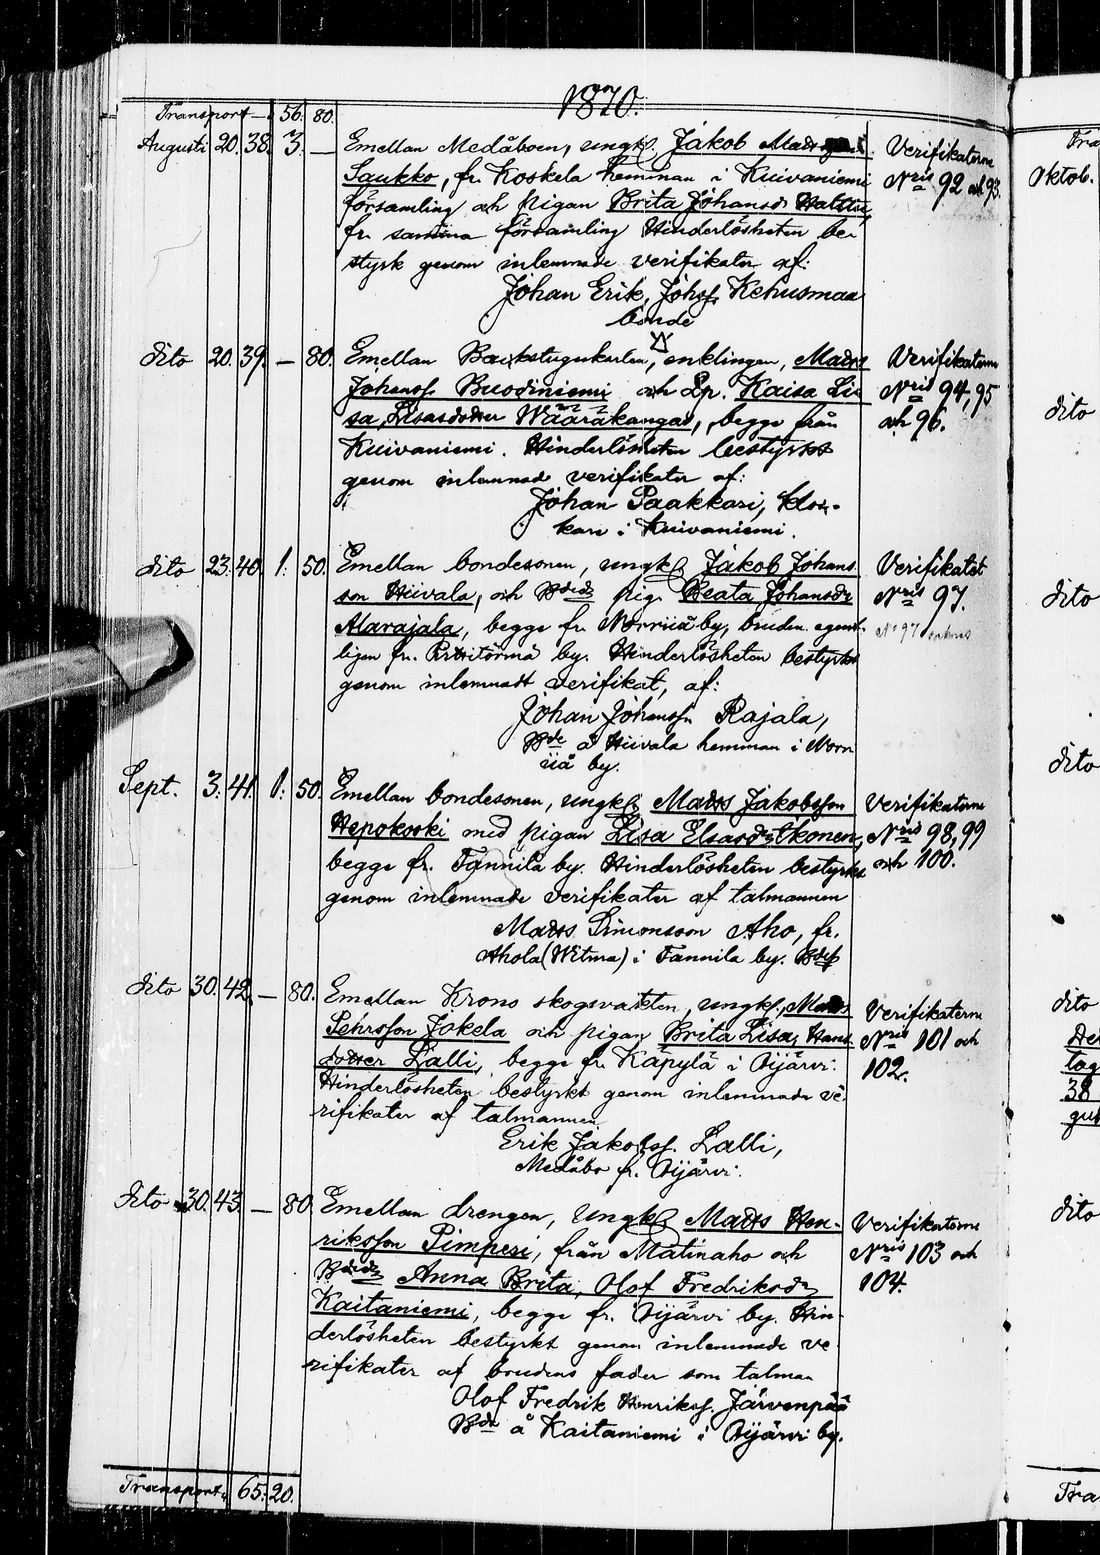 1870.
Transport 56. 80.
Augusti 20. 38. 3. — Emellan Medåboen, ungk. Jakob Mads
Saukko, fr. Koskela hemman i Kuivaniemi
församling och pigan Brita Johansdr
fr. samma församling Hinderlösheten be-
styrk genom inlemnade verifikater af:
Johan Erik, Johsf. Kehusmaa
bonde
Verifikaterne
Nris 92 och 93.
dito 20. 39. — 80. Emellan Backstugukarlen, enklingen, Matts
Johansf. Buodiniemi och Lp. Kaisa Li-
sa, Lisasdotter Wääräkangas, begge från
Kuivaniemi. Hinderlösheten bestyrkt
genom inlemnade verifikater af:
Johan Paakkari, kloc-
kare i Kuivaniemi.
Verifikaterne
Nris 94, 95
och 96.
dito 23. 40. 1. 50. Emellan bondesonen, ungk. Jakob Johans-
son Hiivala, och pig. Beata Johansdr
Alarajala, begge fr. Norriiå by, bruden egent-
ligen fr. by. Hinderlösheten bestyrkt
genom inlemnadt verifikat, af:
Johan Johanssn Rajala,
Bde å Hiivala hemman i Norr
iiå by.
Verifikatet
Nris 97.
No 97
Sept. 3. 41. 1. 50. Emellan bondesonen, ungk. Matts Jakobsson
Hepokoski med pigan Lisa Elsasdr Ikonen,
begge fr. Tannila by. Hinderlösheten bestyrkt
genom inlemnade verifikater af talmannen
Matts Simonsson Aho, fr.
Ahola (Witma) i Tannila by.
Verifikaterne
Nris 98, 99
och 100.
dito 30. 42. — 80. Emellan Krono skogsvakten, ungk., Matts
Pehrsson Jokela och pigan Brita Lisa, Hans-
dotter Lalli, begge fr. Käpylä i Oijärvi.
Hinderlösheten bestyrkt genom inlemnade ve-
rifikater af talmannen
Erik Jakobsf. Lalli,
Medåbo fr. Oijärvi.
Verifikaterne
Nris 101 och
102.
dito 30. 43. — 80. Emellan drengen, ungk. Matts Hen-
riksson Pimperi, från Matinaho och
Anna Brita, Olof Fredriksdr
Kaitaniemi, begge fr. Oijärvi by. Hin-
derlösheten bestyrkt genom inlemnade ve-
rifikater af brudens fader som talman
Olof Fredrik Henriksf. Järvenpää
Bde å Kaitaniemi i Oijärvi by.
Verifikaterne
Nris 103 och
104.
Transport 65. 20.
Tra
Oktob.
dito
dito
dito
dito
tag
38
dito
Tra